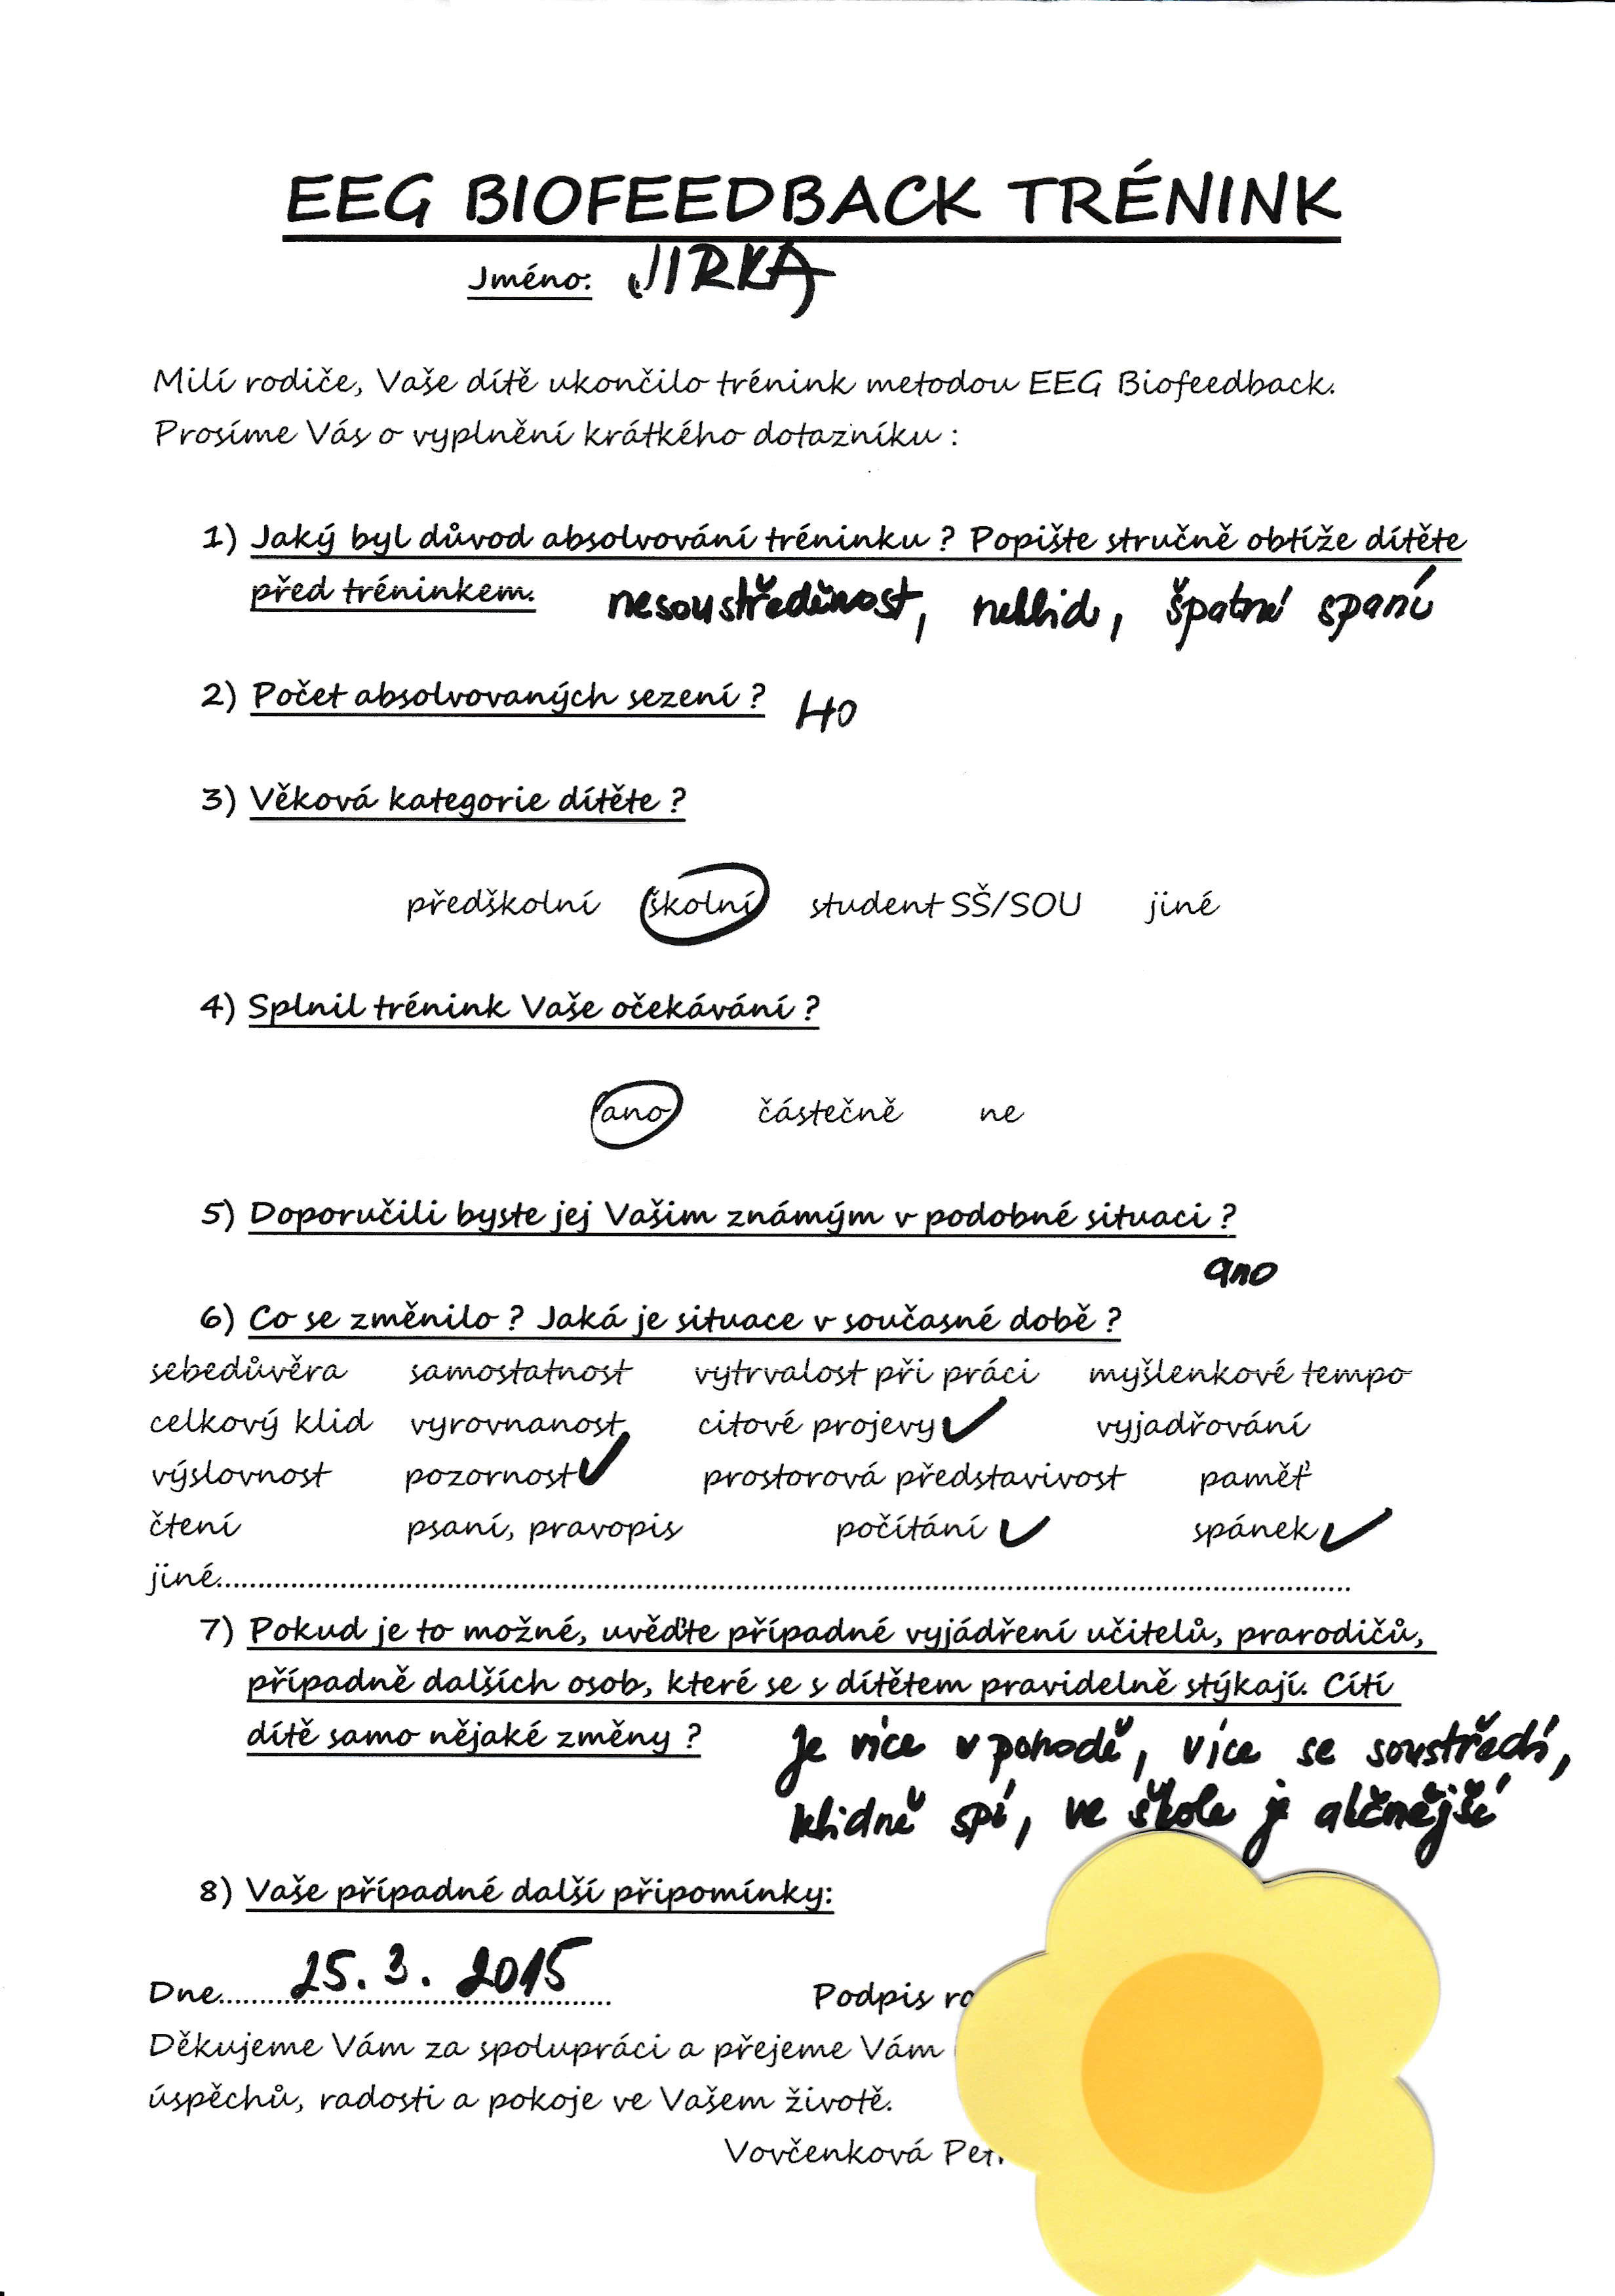 EEG BIOFEEDBACK TRÉNINK
Jméno: JIRKA
Milí rodiče, Vaše dítě ukončilo trénink metodou EEG Biofeedback.
Prosíme Vás o vyplnění krátkého dotazníku :
1) Jaký byl důvod absolvování tréninku ? Popište stručně obtíže dítěte
před tréninkem. nesoustředěnost, neklid, špatné spaní
2) Počet absolvovaných sezení ? 40
3) Věková kategorie dítěte ?
předškolní školní student SŠ/SOU jiné
4) Splnil trénink Vaše očekávání ?
ano částečně ne
5) Doporučili byste jej Vašim známým v podobné situaci ?
ano
6) Co se změnilo ? Jaká je situace v současné době ?
sebedůvěra samostatnost vytrvalost při práci myšlenkové tempo
celkový klid vyrovnanost citové projevy ✓ vyjadřování
výslovnost pozornost ✓ prostorová představivost paměť
čtení psaní, pravopis počítání ✓ spánek ✓
jiné
7) Pokud je to možné, uvěďte případné vyjádření učitelů, prarodičů,
případně dalších osob, které se s dítětem pravidelně stýkají. Cítí
dítě samo nějaké změny ? Je více v pohodě, více se soustředí,
klidně spí, ve škole je
8) Vaše případné další připomínky:
Dne 25. 3. 2015 Podpis
Děkujeme Vám za spolupráci a přejeme Vám
úspěchů, radosti a pokoje ve Vašem životě.
Vovčenková